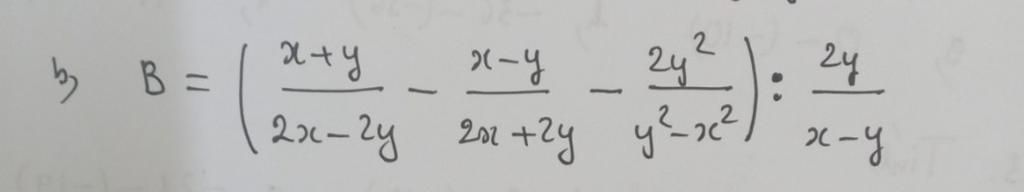 b) B = ( (x+y)/(2x-2y) - (x-y)/(2x+2y) - 2y²/(y²-x²) ) : 2y/(x-y)